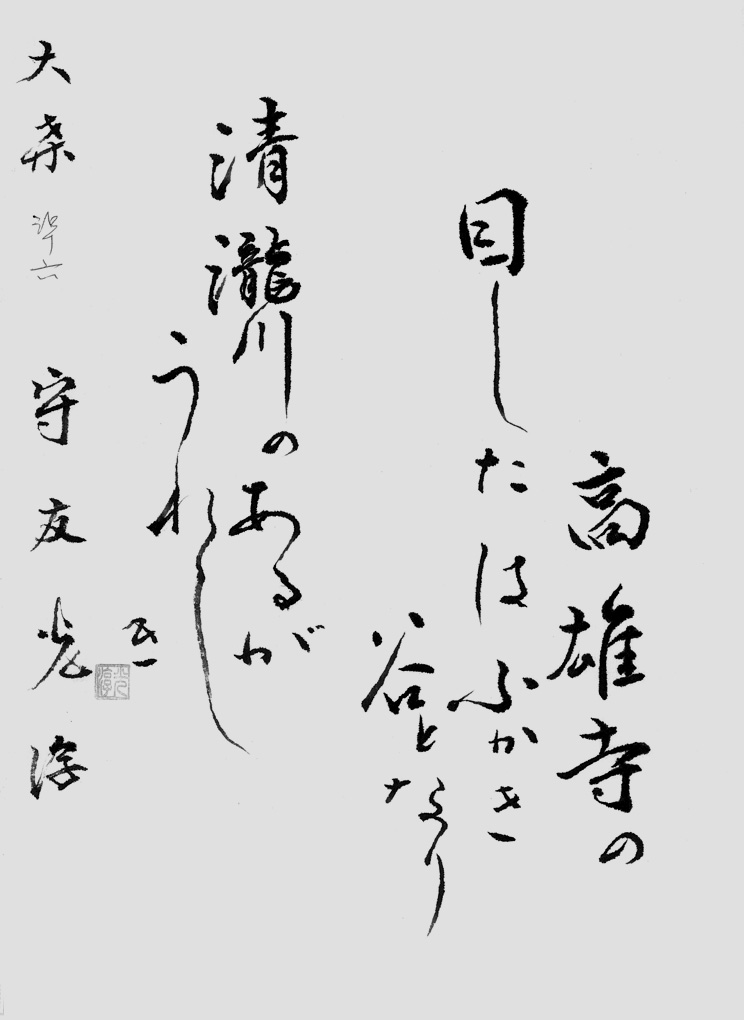 高雄寺の
目したはふかき
谷となり
清瀧川のあるが
うれしき
大桑 守友光淳